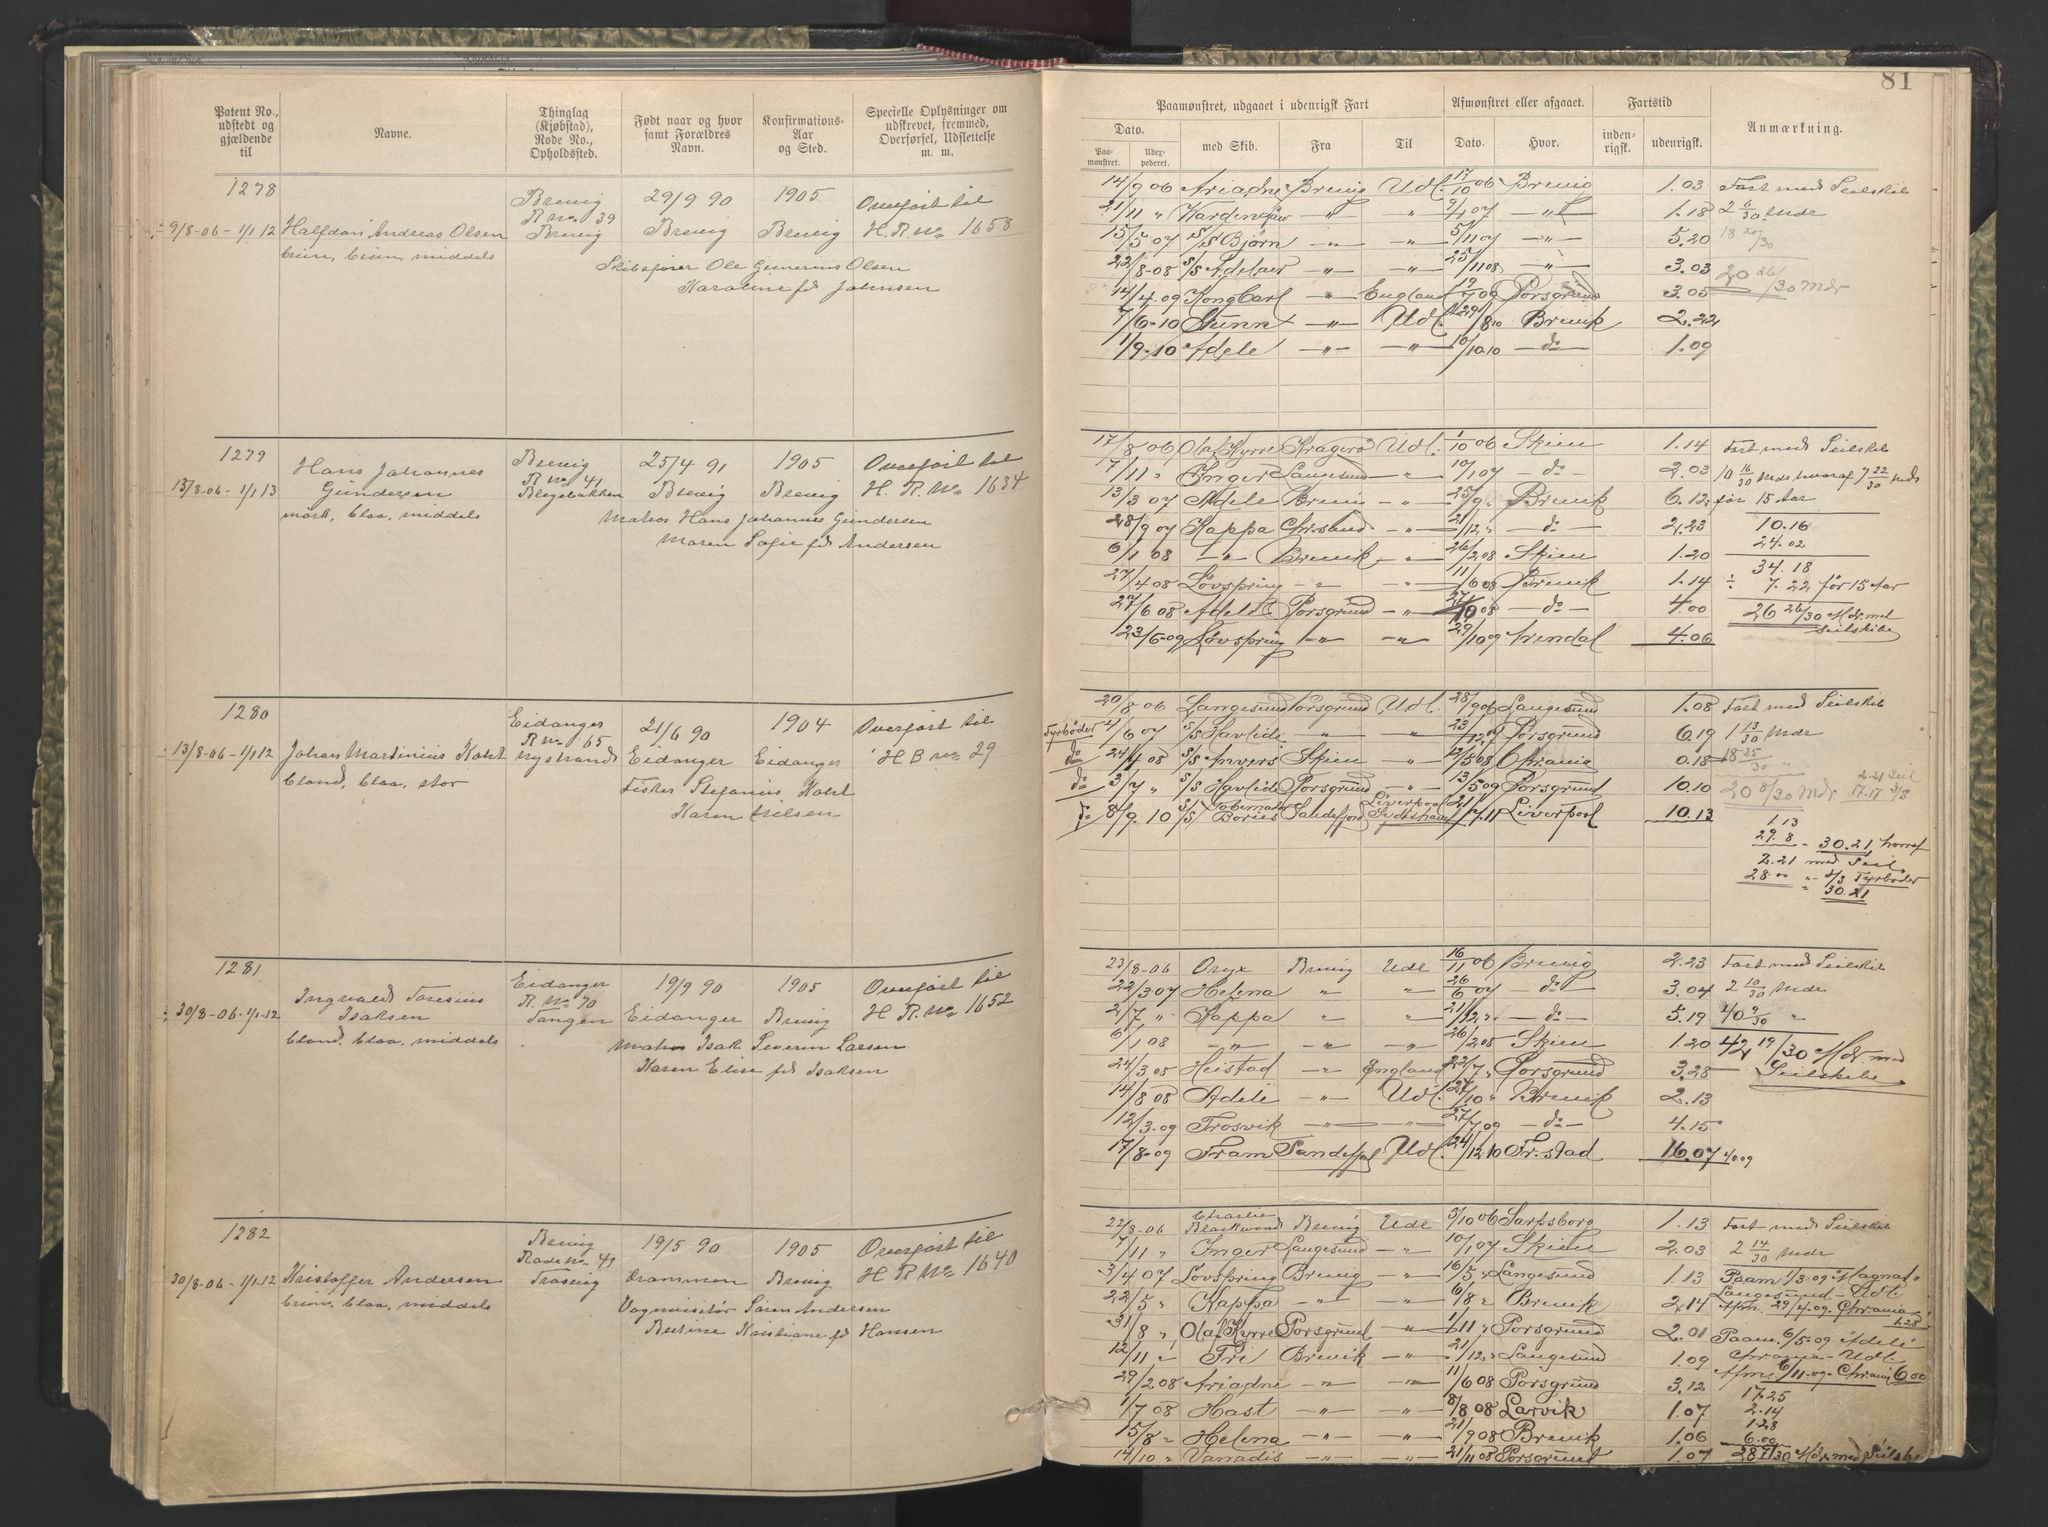 Patent No., udstedt og gjældende til
Navne.
Thinglag (Kjøbstad), Rode No., Opholdssted.
Født naar og hvor samt Forældres Navn.
Konfirmations- Aar og Sted.
Specielle Oplysninger om udskrevet, fremmed, Overførsel, Udslettelse m. m.
1278
9/8-06 - 1/1 12
Halfdan Andreas Olsen
brun, brun, middels
Brevig
R no 39
Brevig
29/9 90
Brevig
1905
Brevig
Overført til
H. R. No 1658
Skibsfører Ole Gunerius Olsen
Karoline fd Johnsen
1279
13/8-06 - 1/1 13
Hans Johannes
Gundersen
mørk, blaa, middels
Brevig
R no 41
Blegebakken
25/4 91
Brevig
1905
Brevig
Overført til
H. R. No 1634
Matros Hans Johannes Gundersen
Maren Sofie fd Andersen
1280
13/8-06 - 1/1 12
Johan Martinius Kokt
blond, blaa, stor
Eidanger
R no 65
Nystrand
21/6 90
Eidanger
1904
Eidanger
Overført til
H B no 29
Fisker Stefanius Kokt
Karen Nilsen
1281
30/8-06 - 1/1-12
Ingvald
Isaksen
blond, blaa, middels
Eidanger
R. No 70
Tangen
19/9 90
Eidanger
1905
Brevig
Overført til
H R. No 1652
Matros Isak Severin Larsen
Karen Elise fd Isaksen
1282
30/8-06 - 1/1-12
Kristoffer Andersen
brun, blaa, middels
Brevig
Rode No 41
Trosvig
19/5 90
Drammen
1905
Brevig
Overført til
H R No 1640
Vognvisitør Søren Andersen
Bertine Kristiane fd Hansen
81
Paamønstret, udgaaet i udenrigsk Fart
Afmønstret eller afgaaet.
Fartstid
Anmærkning.
Dato.
Paa- mønstret.
Udex- pederet.
med Skib.
Fra
Til
Dato.
Hvor.
inden- rigsk.
udenrigsk.
14/9 06 Ariadne Brevig Udl. 17/10 06 Brevig 1.03 Fart med Seilskib
21/11 " " " 9/1 07 " 1.18 2 6/30 Mdr
15/5 07 S/S Bjørn " " 5/11 07 " 5.20 18 20/30
22/8-08 S/S Adelaer " " 25/11 08 " 3.03 20 26/30 Mdr
14/4 09 Kong Carl " England 19/7 09 Porsgrund 3.05
7/6-10 " Udl. 29/8 10 Brevik 2.22
1/9-10 Adele " " 10/10 10 do 1.09
17/8 06 Olaf Kyrre Kragerø Udl. 1/10 06 Skien 1.14 Fart med Seilskib
7/11 " Inger Langesund " 10/1 07 do 2.03 10 16/30 Mdr hvoraf 7 22/30 Mdr
13/3 07 Adele Brevig " 25/9 " Brevik 6.12 før 15 Aar
28/9 07 Kappa Chr.sand " 21/12 " do 2.23 10.16
24.02
6/1 08 " Brevik " 26/2 08 Skien 1.20 34.18
27/4 08 Løvspring " " 11/6 08 Brevik 1.14 ÷ 7.22 før 15 Aar
27/6 08 Adele Porsgrund " 27/10 08 do 4.00 26 26/30 Mdr. med
Seilskibe
23/6-09 Løvspring " " 29/10 09 Arendal 4.06
20/8 06 Langesund Porsgrund Udl. 28/9 06 Langesund 1.08 Fart med Seilskib
Fyrbøder 4/6 07 S/S Havlide " " 23/12 07 Porsgrund 6.19 1 13/30 Mdr
do 24/4 08 S/S Anvers Skien " 12/5 08 Chrania 0.18 18 25/30 "
do 3/7 " S/S Havlide Porsgrund " 13/5 09 Porsgrund 10.10 20 8/30 Mdr 2.21 Seil
17.17 S/S
do 8/9 10 S/S Gobernador Bories Sandefjord Liverpool Sydshetl 21/7 11 Liverpool 10.13
1.13
29.8 - 30.21, hvoraf
2.21 med Seil
28.00 " S/S Fyrbøder
= 30.21
23/8-06 Onyx Brevig Udl 16/11 06 Brevig 2.23 Fart med Seilskib
22/3 07 Helena " " 26/6 07 do 3.04 2 10/30 Mdr
2/7 " Kappa " " 21/12 " do 5.19 40 9/30 "
6/1 08 " " " 26/2 08 Skien 1.20 42 19/30 Mdr. med
Seilskibe
24/3 08 Heistad " England 22/7 " Porsgrund 3.28
14/8 08 Adele " Udl. 27/10 " Brevik 2.13
12/3-09 Trosvik " " 27/7 09 do 4.15
17/8-09 Fram Sandefj. Udl. 24/12 10 Fr.stad 16.07 40.09
22/8-06 Charlie Blackwood Brevig Udl 5/10 06 Sarpsborg 1.13 Fart med Seilskib
7/11 " Inger Langesund " 10/1 07 Skien 2.03 2 14/30 Mdr
3/4 07 Løvspring Brevig " 16/5 " Langesund 1.13 Paam 1/3-09 "Magnat"
Langesund - Udl.
22/5 " Kappa " " 6/8 " Brevik 2.14 Afm. 29/4-09 Chrania
1.28
31/8 " Olaf Kyrre Porsgrund " 1/11 " Porsgrund 2.01 Paam. 6/5-09 "Adele"
12/11 " Fri Brevik " 21/12 " Langesund 1.09 Chrania - Udl.
29/2 08 Ariadne " " 11/6 08 Porsgrund 3.12 Afm. 6/11-09 - Chrania 6.00
17.25
1/7 08 Hast " " 8/8 08 Larvik 1.07 2.14
1.28
15/8 " Helena " " 21/9 08 Brevik 1.06 6.00
14/10 " Vanadis " " 21/11 08 Porsgrund 1.07 28 7/30 Mdr med Seilskib